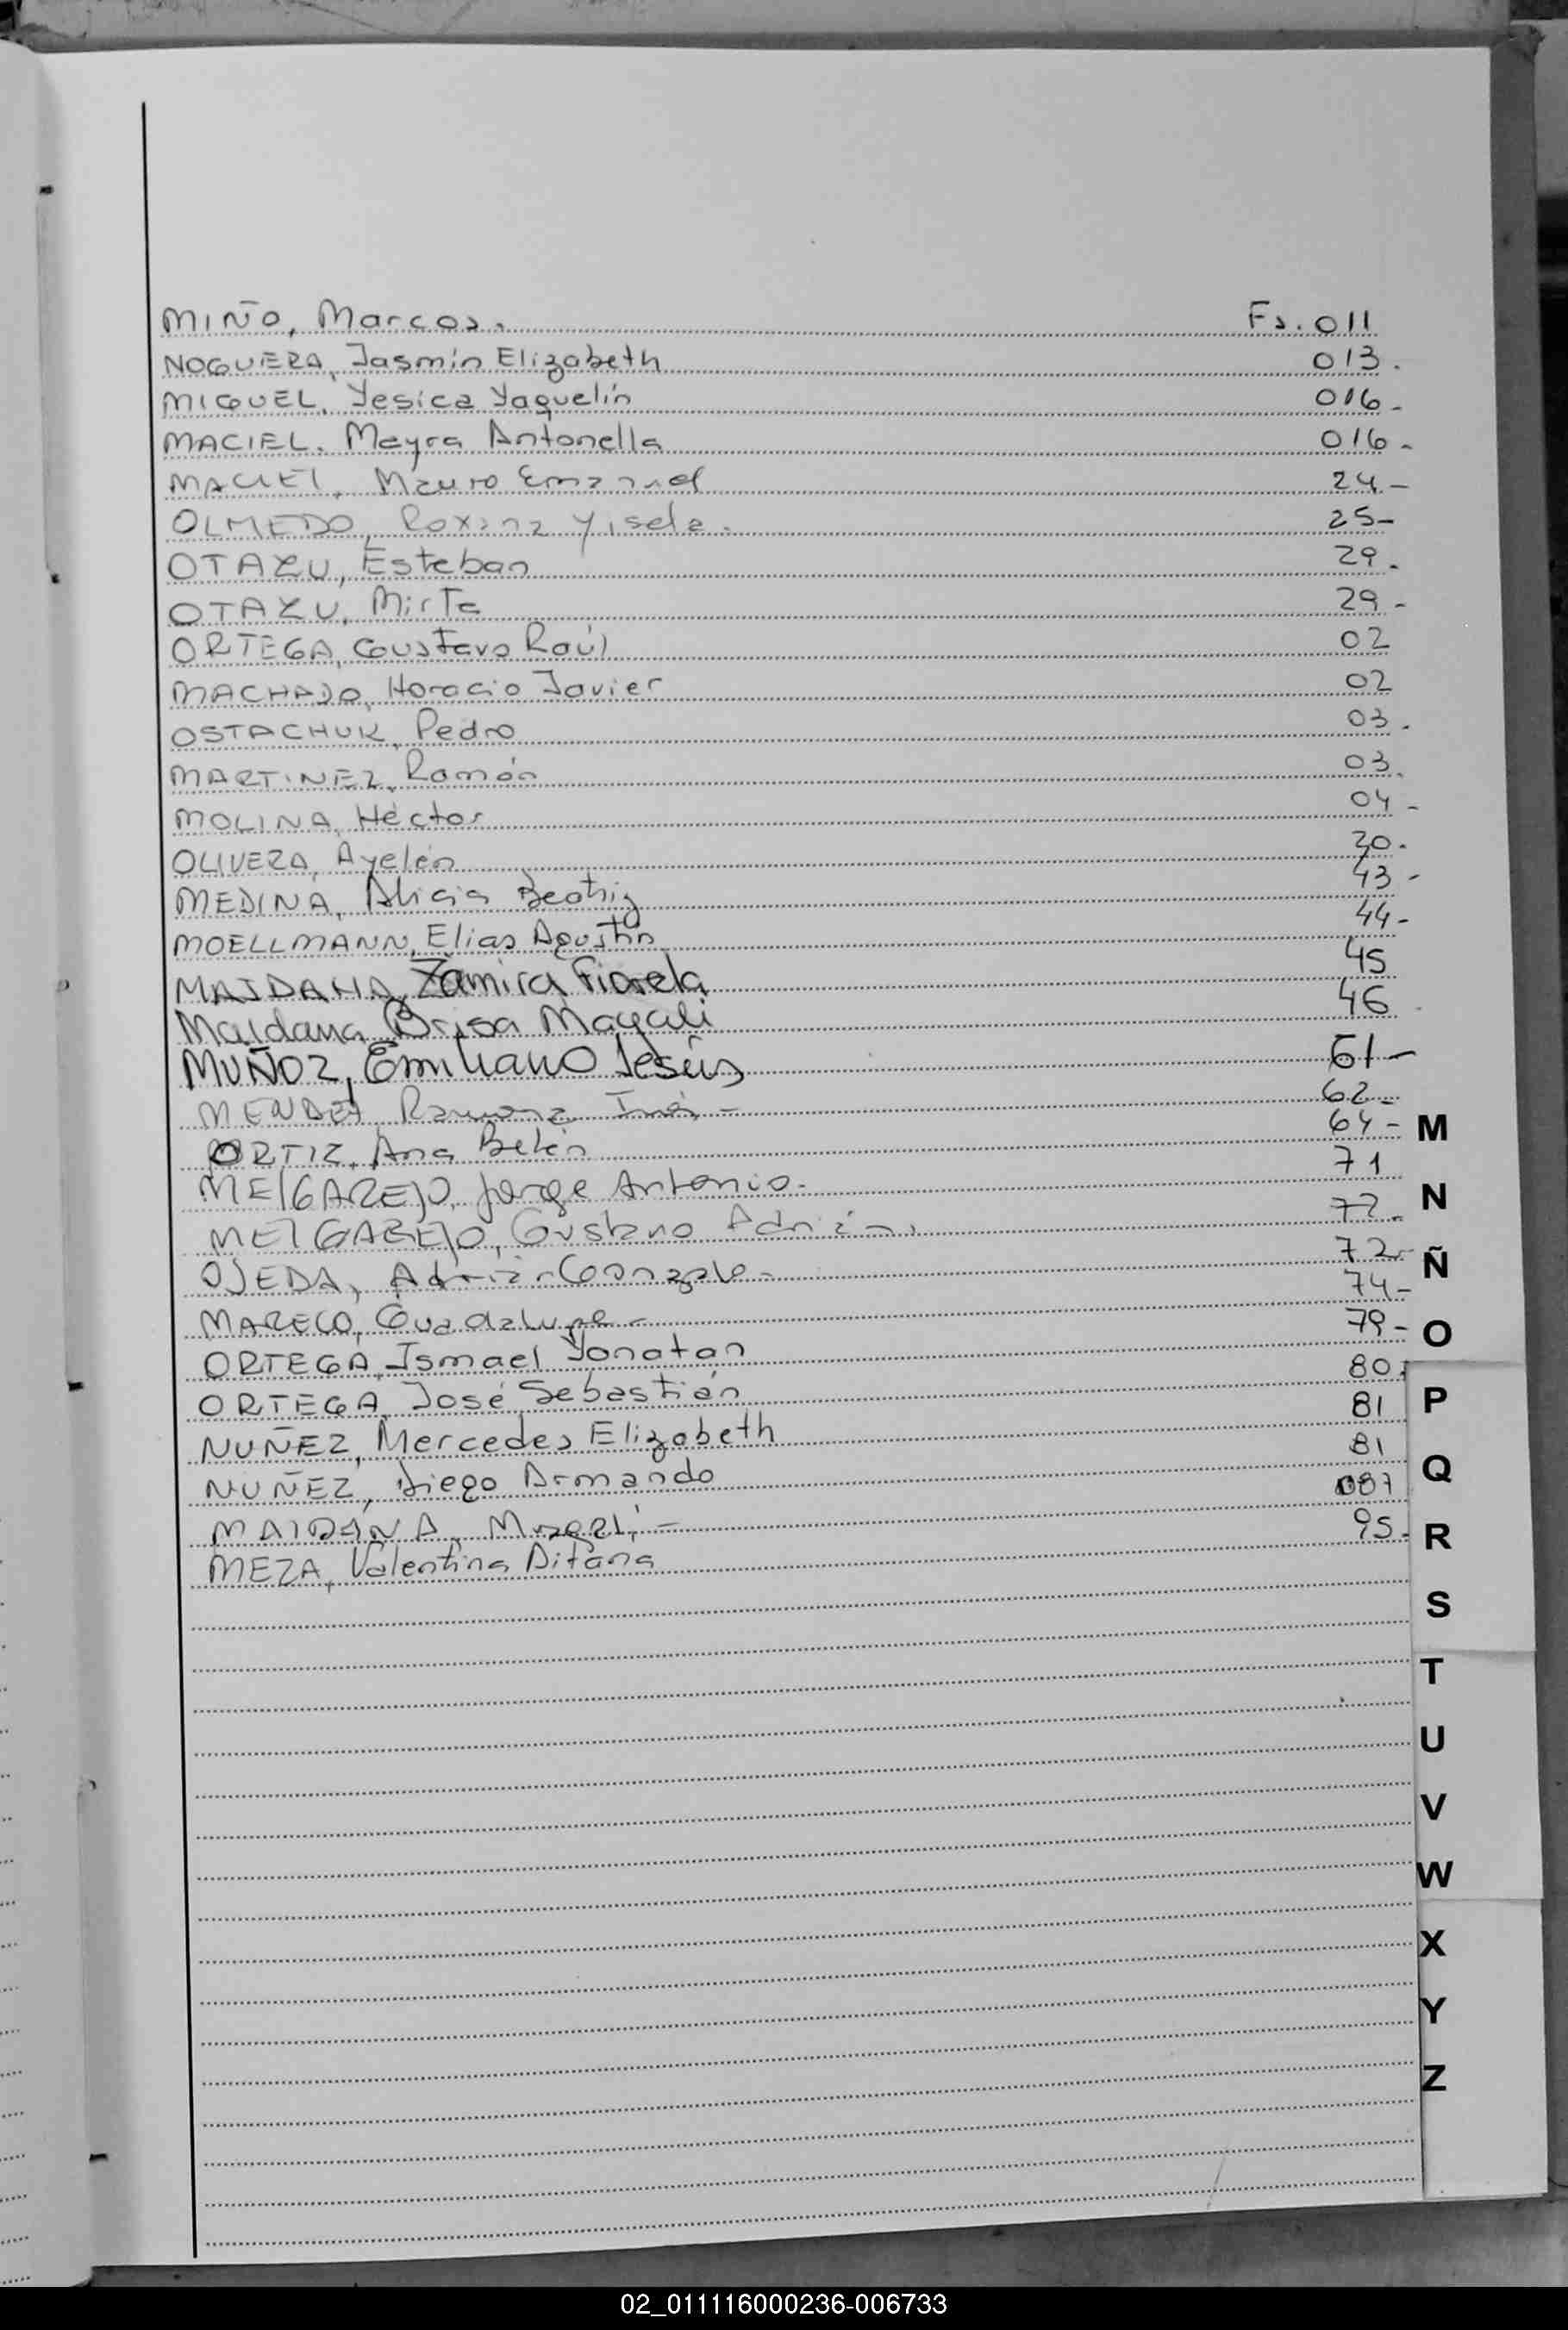 MIÑO, Marcos. Fs. 011
NOGUERA, Jasmín Elizabeth 013.
MIGUEL, Yesica Yaquelín 016-
MACIEL. Mayra Antonella 016-
MACIEL, Mauro Emanuel 24-
OLMEDO, Roxana Yisela. 25-
OTAZU, Esteban 29.
OTAZU, Mirta 29-
ORTEGA, Gustavo Raúl 02
MACHADO, Horacio Javier 02
OSTACHUK, Pedro 03.
MARTINEZ, Ramón 03.
MOLINA, Héctor 04-
OLIVERA, Ayelén 20.
MEDINA, Alicia Beatriz 43-
MOELLMANN, Elias Agustín 44-
MAIDANA, Zamira Fiorela 45
Maidana Brisa Magali 46
MUÑOZ, Emiliano Jesús 61-
MENDEZ, Ramona Inés- 62-
ORTIZ, Ana Belén 64-
MElGAREJO, Jorge Antonio. 71
MElGAREJO, Gustavo Adrián. 72.
OJEDA, Adrián Gonzalo- 72-
MARECO, Guadalupe- 74-
ORTEGA, Ismael Yonatan 79-
ORTEGA, José Sebastián 80.
NUÑEZ, Mercedes Elizabeth 81
NUÑEZ, Diego Armando 81
MAIDANA, Magalí- 087
MEZA, Valentina Aitana 95.
M
N
Ñ
O
P
Q
R
S
T
U
V
W
X
Y
Z
02_011116000236-006733